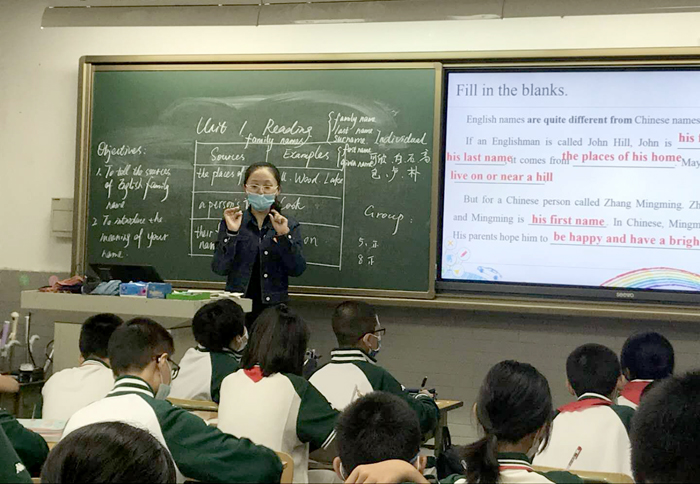 Unit 1 Reading
family names
family name
last name
surname
first name
given name
Individual
Objectives:
1. To tell the sources
of English family
name
2. To introduce the
meaning of your
name.
Sources
Examples
the places of
Wood. Lake
a person's
their
on
Group:
5. 正
8 正
Fill in the blanks.
English names are quite different from Chinese names
If an Englishman is called John Hill, John is his
his last name. It comes from the places of his home. May
live on or near a hill
But for a Chinese person called Zhang Mingming. Zh
and Mingming is his first name. In Chinese, Mingm
His parents hope him to be happy and have a brigh